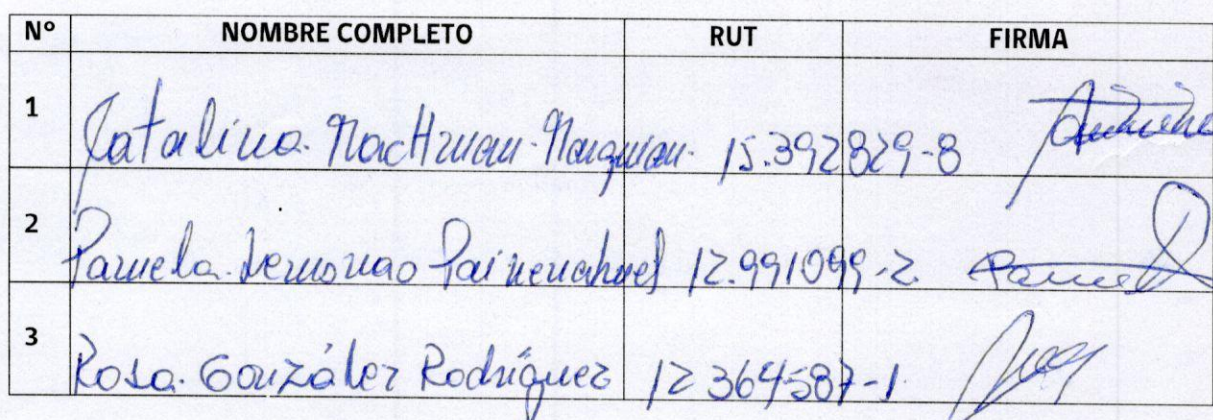 Nº NOMBRE COMPLETO RUT FIRMA
1 Catalina 15.392829-8
2 Pamela Lemonao Painenahuel 12.991099-2
3 Rosa González Rodríguez 12364587-1